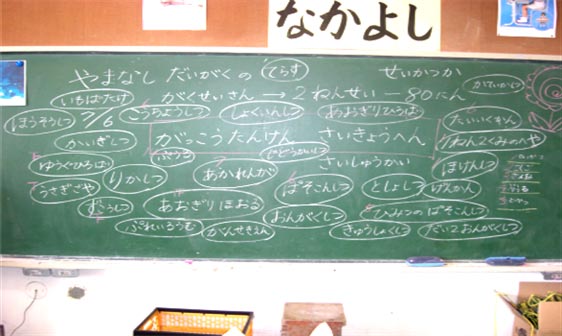 なかよし
やまなし だいがくの てらす せいかつか
いもばたけ がくせいさん→2ねんせい－80にん かていかしつ
ほうそうしつ 7/6 こうちょうしつ しょくいんしつ あおぎりひろば たいいくかん
かいぎしつ がっこうたんけん さいきょうへん 1ねん2くみのへや
ぷうる さいしゅうかい
ゆうぐひろば りかしつ あかれんが ほけんしつ
うさぎごや ぱそこんしつ としょしつ げんかん
あおぎりほおる おんがくしつ ひみつのぱそこんしつ
ぷれいるうむ がんせきえん きゅうしょくしつ だい2おんがくしつ